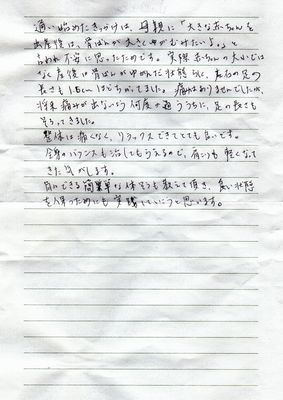 通い始めたきっかけは、母親に「大きな赤ちゃんを
出産後は、骨ばんが大きくゆがむみたいよ。」と
言われ不安に思ったためです。実際赤ちゃんの大小では
なく産後の骨ばんがゆがんだ状態らしく、左右の足の
長さも1.5cmほどちがってました。痛みはありませんでしたが、
将来痛みが出ないよう何度か通ううちに、足の長さも
そろってきました。
整体は痛くなく、リラックスできてとても良いです。
全身のバランスも治してもらえるので、肩こりも軽くなって
きた気がします。
自分でできる簡単な体そうも教えて頂き、良い状態
を保つためにも実践していこうと思います。